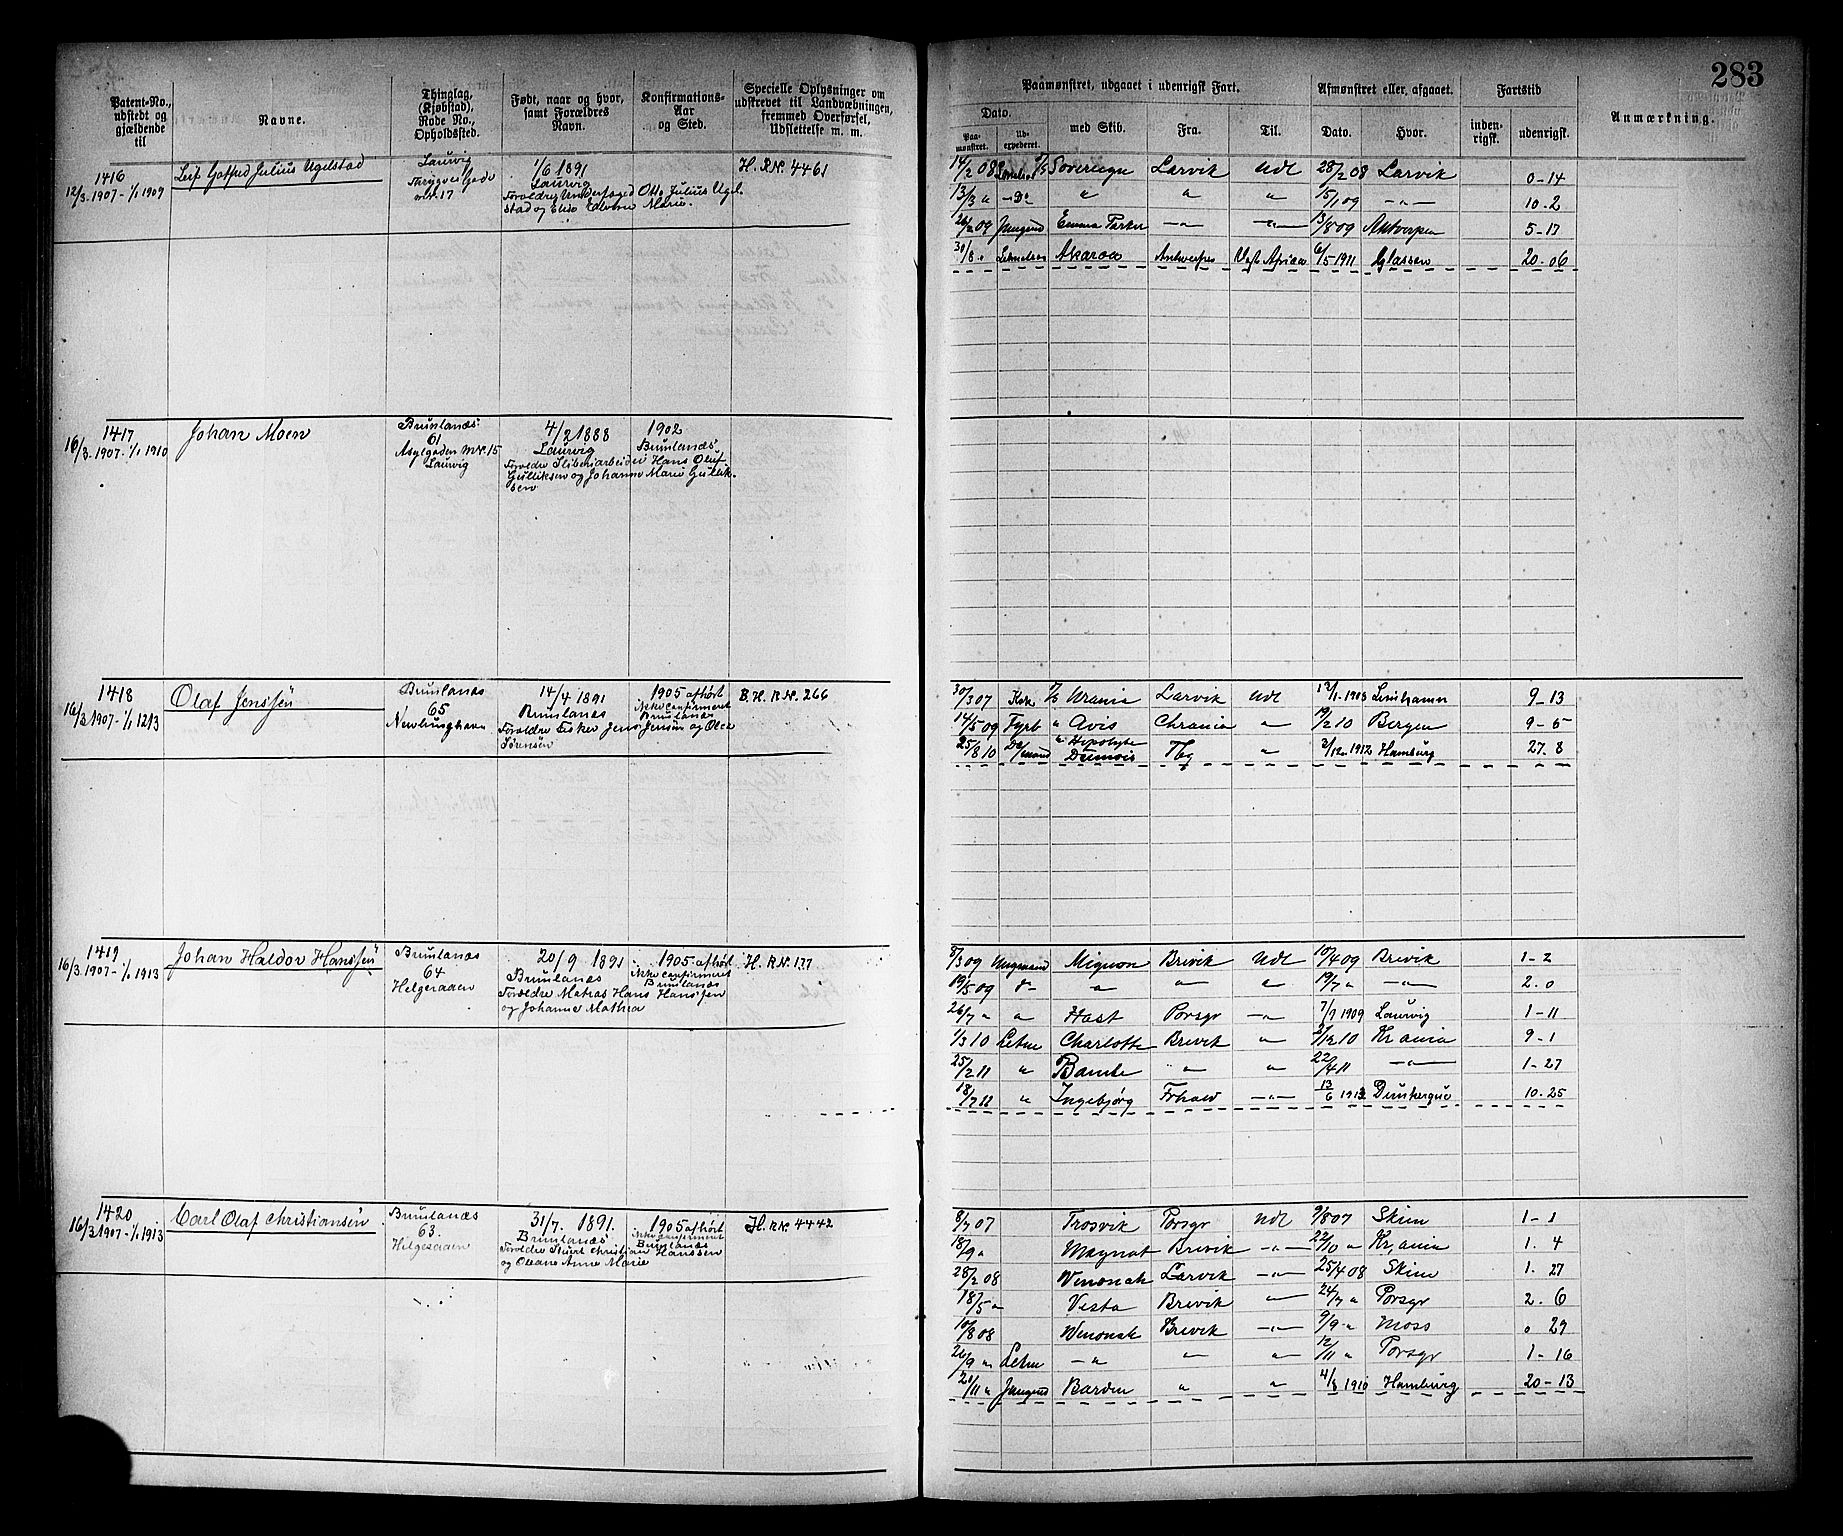 283
Patent-No., udstedt og gjældende til
Navne.
Thinglag, (Kjøbstad), Rode No., Opholdssted.
Født, naar og hvor, samt Forældres Navn.
Konfirmations-Aar og Sted.
Specielle Oplysninger om udskrevet til Landvæbningen, fremmed Overførsel, Udslettelse m. m.
Paamønstret, udgaaet i udenrigsk Fart.
Afmønstret eller, afgaaet.
Fartstid
Anmærkning.
Dato.
Paamønstret.
Udexpederet.
med Skib.
Fra.
Til.
Dato.
Hvor.
indenrigsk.
udenrigsk.
1416
12/3 1907 - 1/1 1909
Leif Gotfred Julius Ugelstad
Laurvig
Thrygves Gade
No. 17
1/6 1891
Laurvig
Otto Julius Ugelstad og
Marie.
H. R.N. 4461
14/2 08 Sovereign Larvik Udl 28/2 08 Larvik 0-14
13/3 " - Do " " " 5/1 09 -"- 10-2
26/2 09 Jungend Emma Parker -"- -"- 13/8 09 Antverpen 5-17
30/8 " Akaroa Antwerpen Afrika 6/5 1911 Glasson 20-06
1417
16/3 1907 - 1/1 1910
Johan Moen
Brunlanæs
61
Asylgaden No. 15
Laurvig
4/2 1888
Laurvig
1902
Brunlanæs
Forældre Sliberiarbeider Hans Oluf
Gulliksen og Johanne Marie Gulliksen
1418
16/3 1907 - 1/1 1213
Olaf Jenssen
Brunlanæs
65
Nevlunghavn
14/4 1891
Brunlanæs
1905 afhørt
Ikke confirmeret
Brunlanæs
Forældre Fisker Jens Jensen og Olea
Sørensen
B. H. R.N. 266
30/3 07 Urania Larvik Udl 12/1-1908 Limhamn 9-13
14/5 09 Fyrb " Avis Chrania " 19/2 10 Bergen 9-5
25/8 10 Hypolyte Dumois Tbg " 2/12 1912 Hamburg 27.8
1419
16/3 1907 - 1/1 1913
Johan Haldor Hanssen
Brunlanæs
64
Helgeraaen
20/9 1891
Brunlanæs
1905 afhørt
Ikke confirmeret
Brunlanæs
Forældre Matros Hans Hanssen
og Johanne Mathea
H. R.N. 177
8/3 09 Ungmand Mignon Brevik Udl 10/4 09 Brevik 1-2
19/5 09 do " " " 19/7 " -"- 2.0
26/7 " " Hast Porsgr -"- 7/9 1909 Laurvig 1-11
1/3 10 Letm Charlotte Brevik " 2/12 10 Kr,ania 9-1
25/2 11 " Bamle " " 22/4 11 -"- 1-27
18/7 11 " Ingebjørg Frhald -"- 13/6 1912 Dunkerque 10-25
1420
16/3 1907 - 1/1 1913
Carl Olaf Christiansen
Brunlanæs
63.
Helgeraaen
31/7. 1891.
Brunlanæs
1905 afhørt
Ikke confirmeret
Brunlanæs
Forældre Christian Hanssen
og Oleane Anne Marie
H. R.N. 4442
8/7 07 Trosvik Porsgr Udl 9/8 07 Skien 1-1
18/9 " Magnat Brevik -"- 22/10 " Kr,ania 1.4
28/2 08 Winonah Larvik -"- 25/4 08 Skien 1.27
18/5 " Vesta Brevik -"- 24/7 " Porsgr 2.6
10/8 08 Winonah Brevik -"- 9/9 " Moss 0 29
26/9 " Letm -"- " " 12/11 " Porsgr 1-16
21/11 " Jungmd Barden " " 4/8 1910 Hamburg 20-13